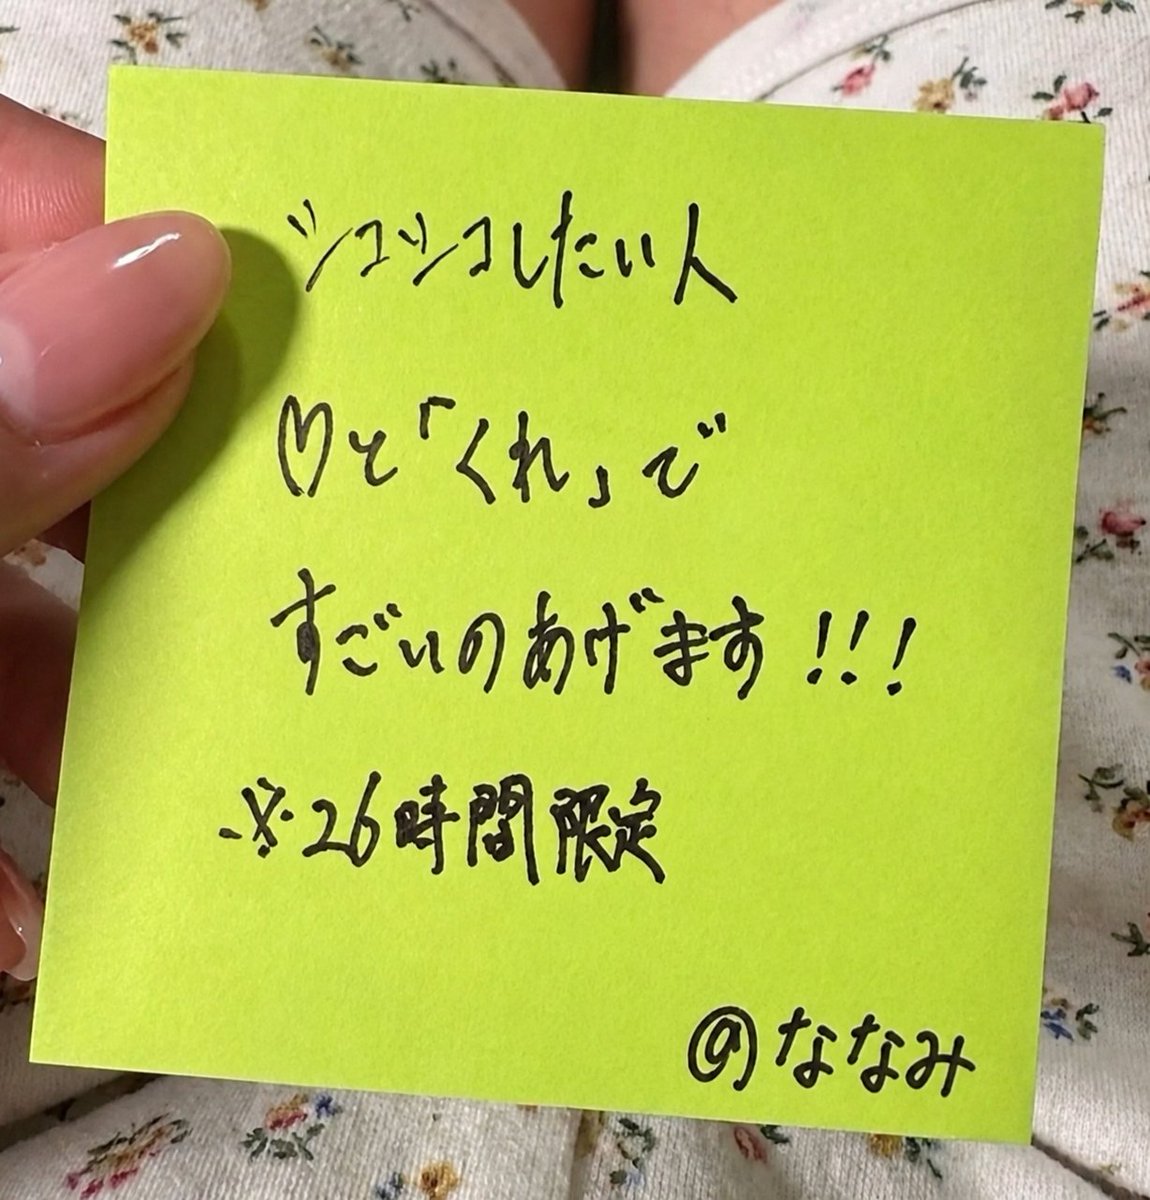 シコシコしたい人
♡と「くれ」で
すごいのあげます!!!
※26時間限定
@ななみ